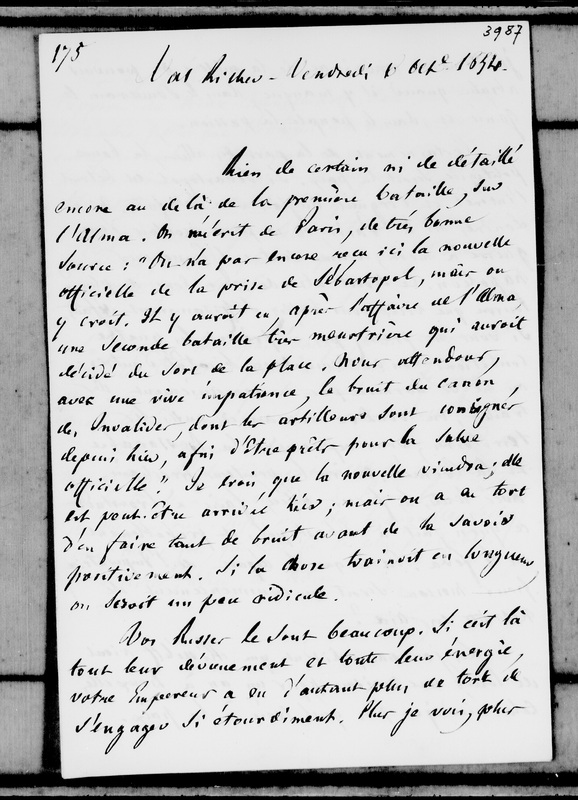 175
3987
Val Richer - Vendredi 6 Oct. 1854.
Rien de certain ni de détaillé
encore au delà de la première bataille, sur
l'Alma. On m'écrit de Paris, de très bonne
source : "On n'a pas encore reçu ici la nouvelle
officielle de la prise de Sébastopol, mais on
y croit. Il y auroit eu, après l'affaire de l'Alma
une seconde bataille très meurtrière qui auroit
décidé du sort de la place. Nous attendons,
avec une vive impatience, le bruit du canon
des Invalides, dont les artilleurs sont consignés
depuis hier, afin d'être prêts pour la salve
officielle." Je crois que la nouvelle viendra ; elle
est peut-être arrivée hier ; mais on a eu tort
d'en faire tant de bruit avant de la savoir
positivement. Si la chose trainoit en longueur,
on seroit un peu ridicule.
Vos Russes le sont beaucoup. Si c'est là
tout leur dévouement et toute leur énergie,
votre Empereur a eu d'autant plus de tort de
s'engager si étourdiment. Plus je vois, plus